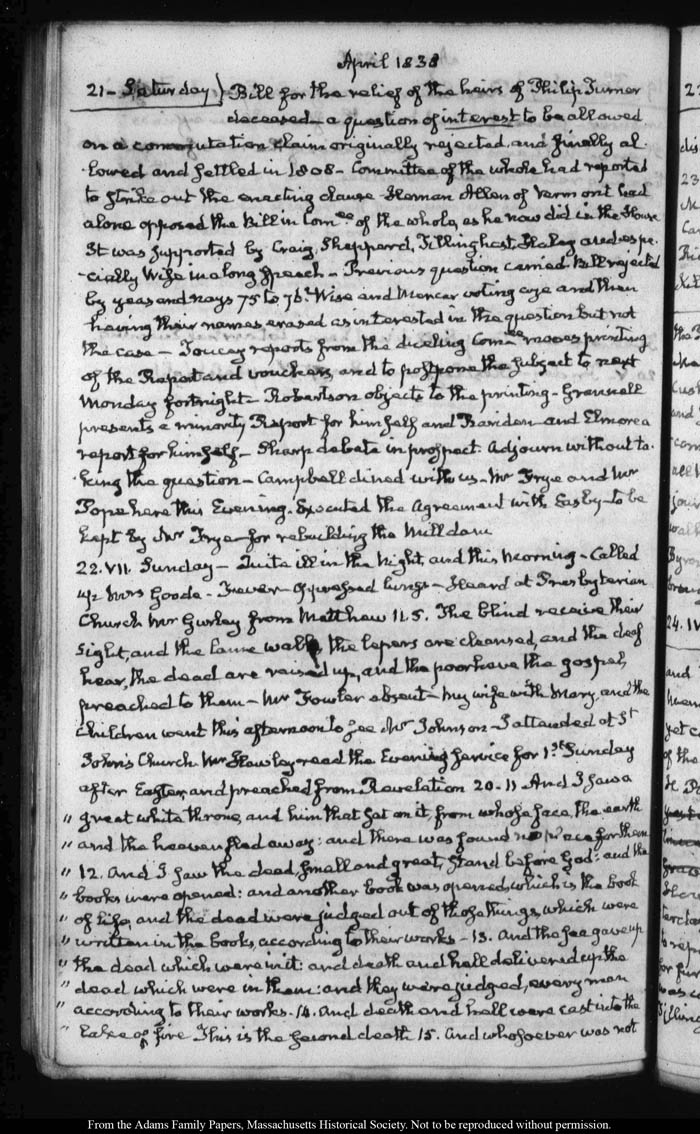 April 1838
21 - Saturday } Bill for the relief of the heirs of Philip Turner
deceased - a question of interest to be allowed
on a commutation claim originally rejected, and finally al-
-lowed and settled in 1808 - Committee of the whole had reported
to strike out the enacting clause. Heman Allen of Vermont had
alone opposed the Bill in Comee of the whole, as he now did in the House
It was supported by Craig, Sheppard, Tillinghast, Haley and espe-
-cially Wise in a long speech - Previous question carried Bill rejected
by yeas and nays 75 to 76. Wise and Mercer voting aye and then
having their names erased as interested in the question but not
the case - Toucey reports from the duelling Comee moves printing
of the Report and vouchers, and to postpone the subject to next
Monday fortnight - Robertson objects to the printing - Grennell
presents a minority Report for himself and Rariden - and Elmore a
report for himself - Sharp debate in prospect. Adjourn without ta-
-king the question - Campbell dined with us - Mr Frye and Mr
Pope here this Evening. Executed the Agreement with Easby - to be
kept by Mr Frye - for rebuilding the Milldam
22. VII. Sunday - Quite ill in the Night, and this Morning - Called
4/2 Mrs Goods - Fever - oppressed lungs - Heard at Presbyterian
Church Mr Gurley from Matthew 11.5. The blind receive their
sight, and the lame walk, the lepers are cleansed, and the deaf
hear, the dead are raised up, and the poor have the gospel,
preached to them - Mr Fowler absent - My wife with Mary, and the
children went this afternoon to see Mr Johnson - I attended at St
John's Church Mr Hawley read the Evening service for 1.st Sunday
after Easter, and preached from Revelation 20-11 And I saw a
" great white throne, and him that sat on it, from whose face, the earth
" and the heaven fled away: and there was found no place for them
" 12. And I saw the dead, small and great, stand before God: and the
" books were opened: and another book was opened, which is the book
" of life, and the dead were judged out of those things, which were
" written in the books, according to their works - 13. And the sea gave up
" the dead which were in it: and death and hell delivered up the
" dead which were in them: and they were judged, every man
" according to their works. 14. And death and hell were cast into the
" Lake of fire This is the second death 15. And whosoever was not
From the Adams Family Papers, Massachusetts Historical Society. Not to be reproduced without permission.